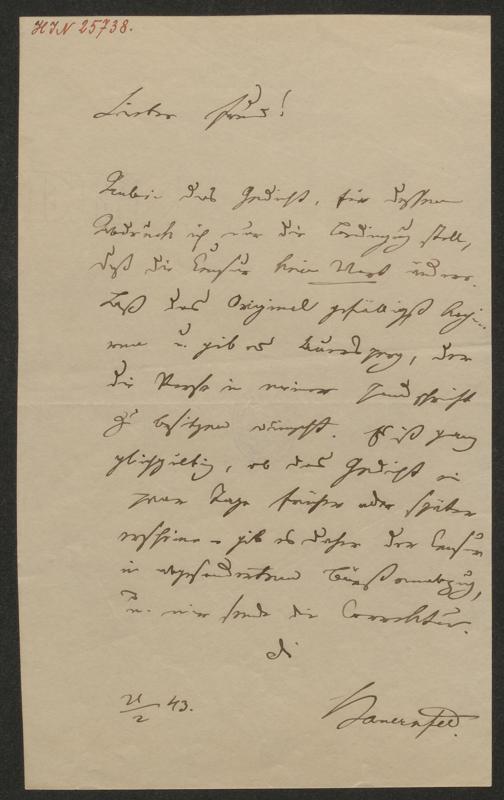 HIN 25738.
Lieber Freund!
das Gedicht, für dessen
Abdruck ich nur die Bedingung stell,
daß die Censur kein Wort ändere.
Laß das Original gefälligst
u. gib es, der
die Verse in meiner Handschrift
zu besitzen wünscht. Es ist ganz
gleichgültig, ob das Gedicht ein
paar Tage früher oder später
erscheine - gib es daher der Censur
in abgesondertem Bürstenabzug,
u. mir sende die Correktur.
21/2 43.
Bauernfeld.